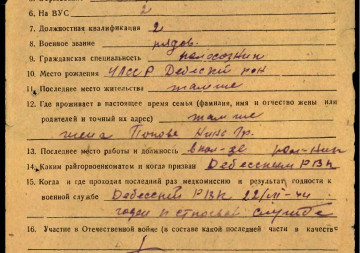 6. На ВУС 2
7. Должностная квалификация 2
8. Военное звание рядов.
9. Гражданская специальность колхозник
10. Место рождения УАССР Дебесский рон
11. Последнее место жительства там же
12. Где проживает в настоящее время семья (фамилия, имя и отчество жены или
родителей и точный их адрес) там же
жена Попова
13. Последнее место работы и должность
14. Каким райгорвоенкоматом и когда призван Дебесским РВК
15. Когда и где проходил последний раз медкомиссию и результат годности к
военной службе Дебесский РВК 22/
годен к строевой службе
16. Участие в Отечественной войне (в составе какой последней части и в качестве